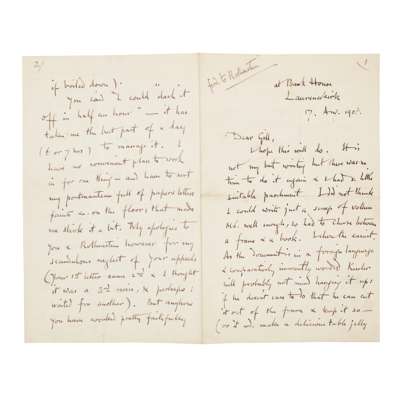 1
find to Rothenstein
at Bank House
Laurencekirk
17. Aug. 190
Dear Gill,
I hope this will do. It is
not my best writing but there was no
time to do it again & I had a little
suitable parchment. I did not think
I could write just a scrap of vellum
well enough, so had to choose between
a frame & a book. I chose the easiest,
As the document is in a foreign language
& comparatively innocently worded Kessler
will probably not mind hanging it up:
if he doesn't care to do that he can cut
it out of the frame & keep it so—
(or it wd. make a delicious table jelly
2/
if boiled down).
You said "I could dash it
off in half an hour" — it has
taken me the best part of a day
(6 or 7 hrs) to manage it. I
have no convenient place to work
in for one thing — and have to sort
my portmanteau full of papers letters
paints &c. on the floor: that made
me stick a bit. My apologies to
you & Rothenstein however for my
scandalous neglect of your appeals
(Your 1st letter came 2nd & I thought
it was a 3rd missing, & perhaps I
waited for another). But anyhow
you have worked pretty faithfully